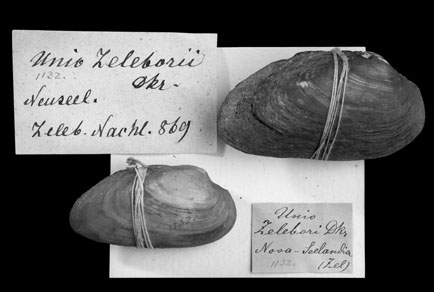 Unio Zeleborii
1132. Dkr.
Neuseel.
Zeleb. Nachl. 869
Unio
Zelebori Dkr
Nova-Seelandia
1132. (Zel)